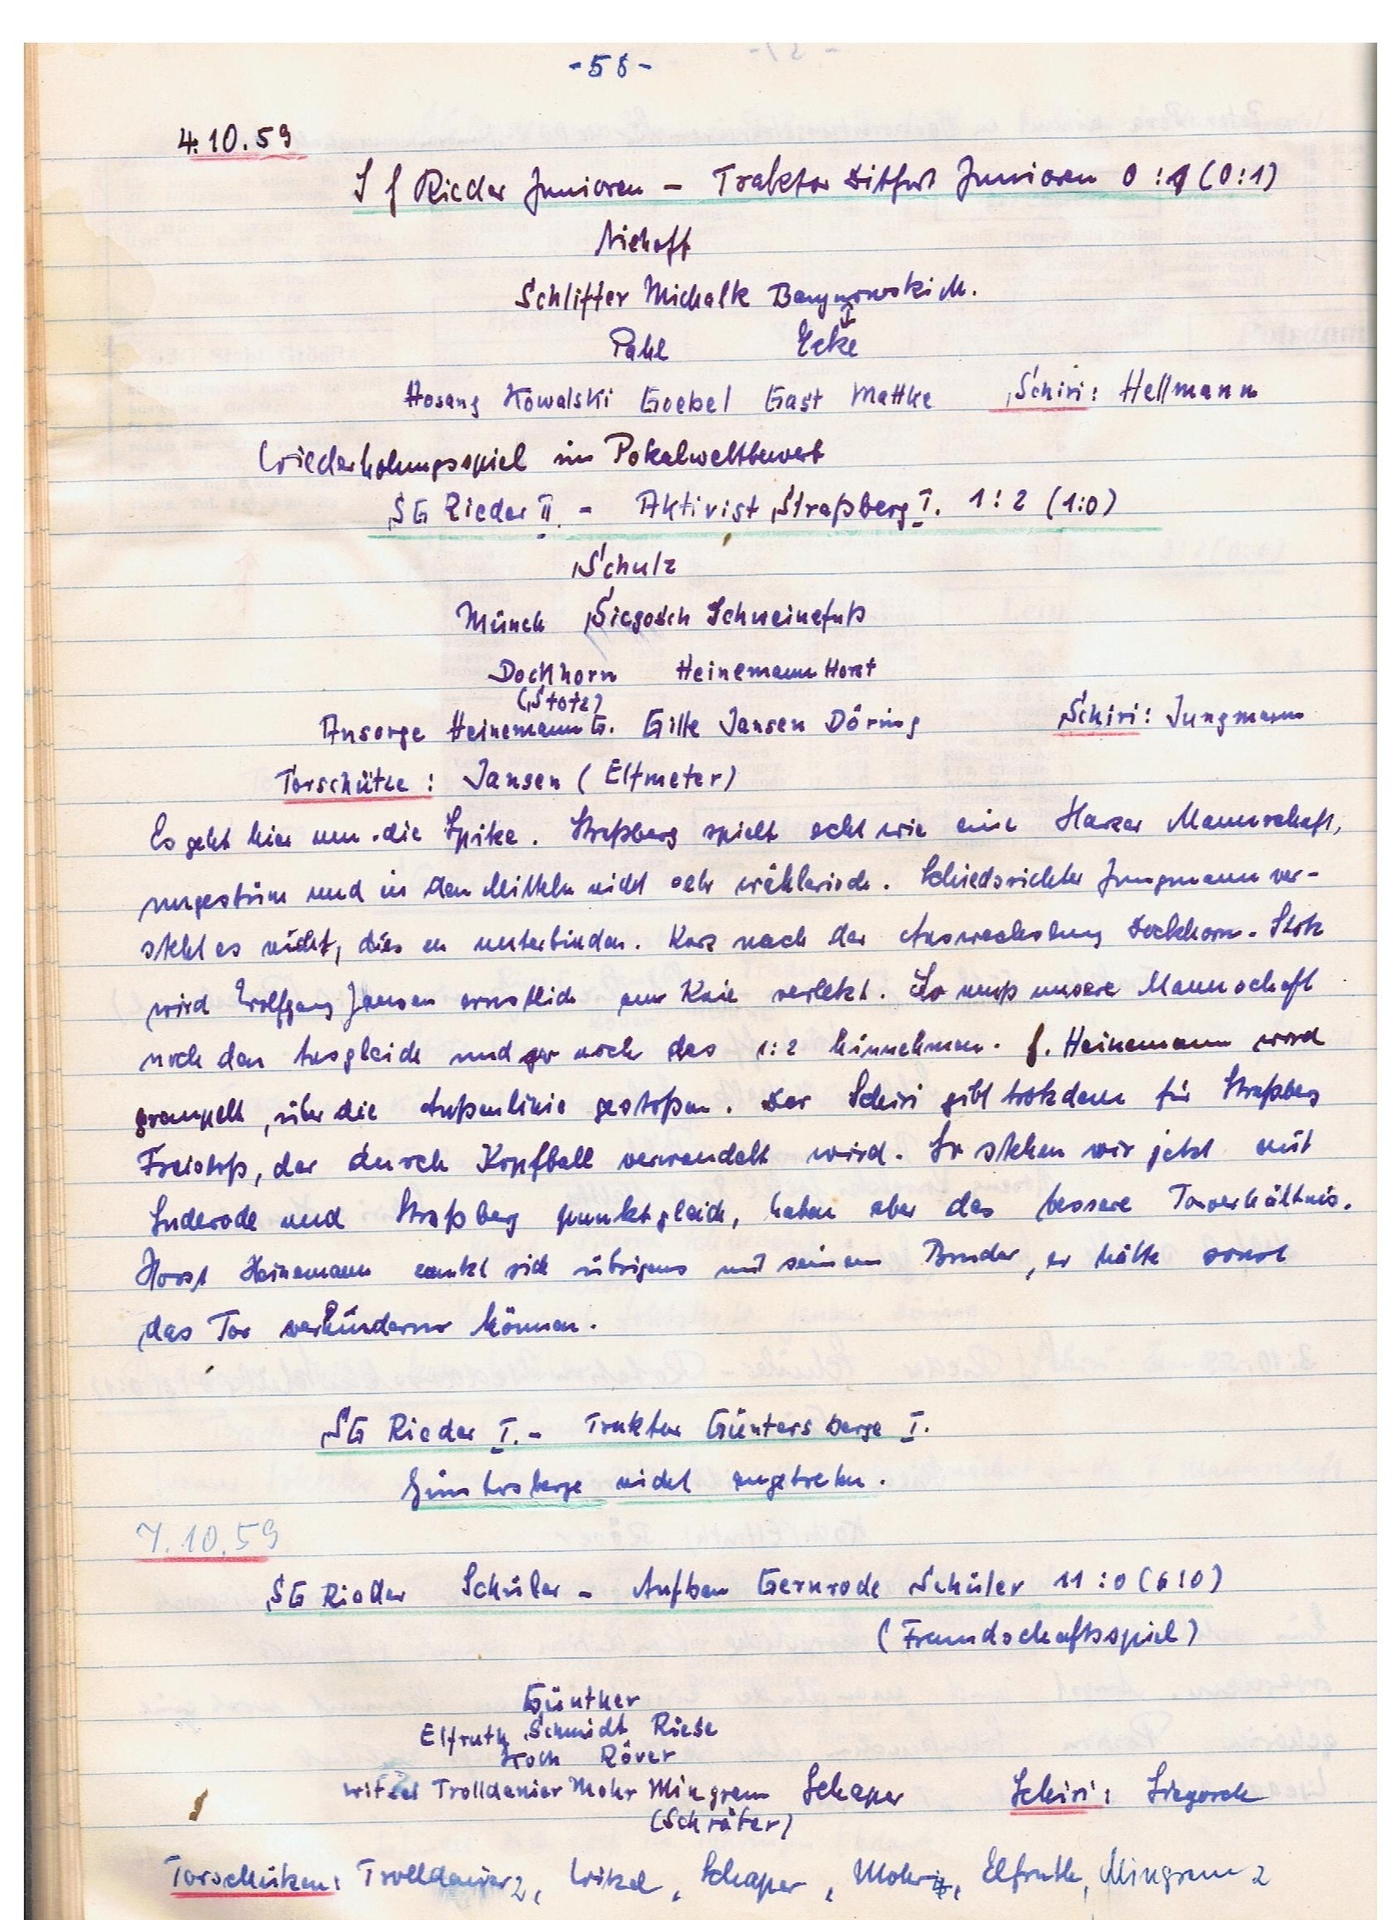 -58-
4.10.59
SG Rieder Junioren - Traktor Ditfurt Junioren 0:1 (0:1)
Niehoff
Schlifter Michalk M.
Pahl Ecke
Hosang Kowalski Goebel Gast Mattke Schiri: Hellmann
Wiederholungsspiel im Pokalwettbewerb
SG Rieder II. - Aktivist Straßberg I. 1:2 (1:0)
Schulz
Münch Siegosch Schweinefuß
Dockhorn Heinemann Horst
(Stotz)
Ansorge Heinemann G. Gille Jansen Döring Schiri: Jungmann
Torschütze: Jansen (Elfmeter)
Es geht hier um die Spitze. Straßberg spielt echt wie eine Harzer Mannschaft,
ungestüm und in den Mitteln nicht sehr wählerisch. Schiedsrichter Jungmann ver-
steht es nicht, dies zu unterbinden. Kurz nach der Auswechslung Dockhorn - Stotz
wird Wolfgang Jansen ernstlich am Knie verletzt. So muß unsere Mannschaft
noch den Ausgleich und noch das 1:2 hinnehmen. G. Heinemann wird
grempelt, über die Außenlinie gestoßen. Der Schiri gibt trotzdem für Straßberg
Freistoß, der durch Kopfball verwandelt wird. So stehen wir jetzt mit
Suderode und Straßberg punktgleich, haben aber das bessere Torverhältnis.
Horst Heinemann zankt sich übrigens mit seinem Bruder, er hätte sonst
das Tor verhindern können.
SG Rieder I. - Traktor Güntersberge I.
Güntersberge nicht angetreten.
7.10.59
SG Rieder Schüler - Aufbau Gernrode Schüler 11:0 (6:0)
(Freundschaftsspiel)
Günther
Elfruth Schmidt Riese
Koch Röver
Witzel Trolldenier Mohr Mingram Schaper Schiri: Siegosch
(Schröter)
Torschützen: Trolldenier 2, Witzel, Schaper, Mohr 4, Elfruth, Mingram 2